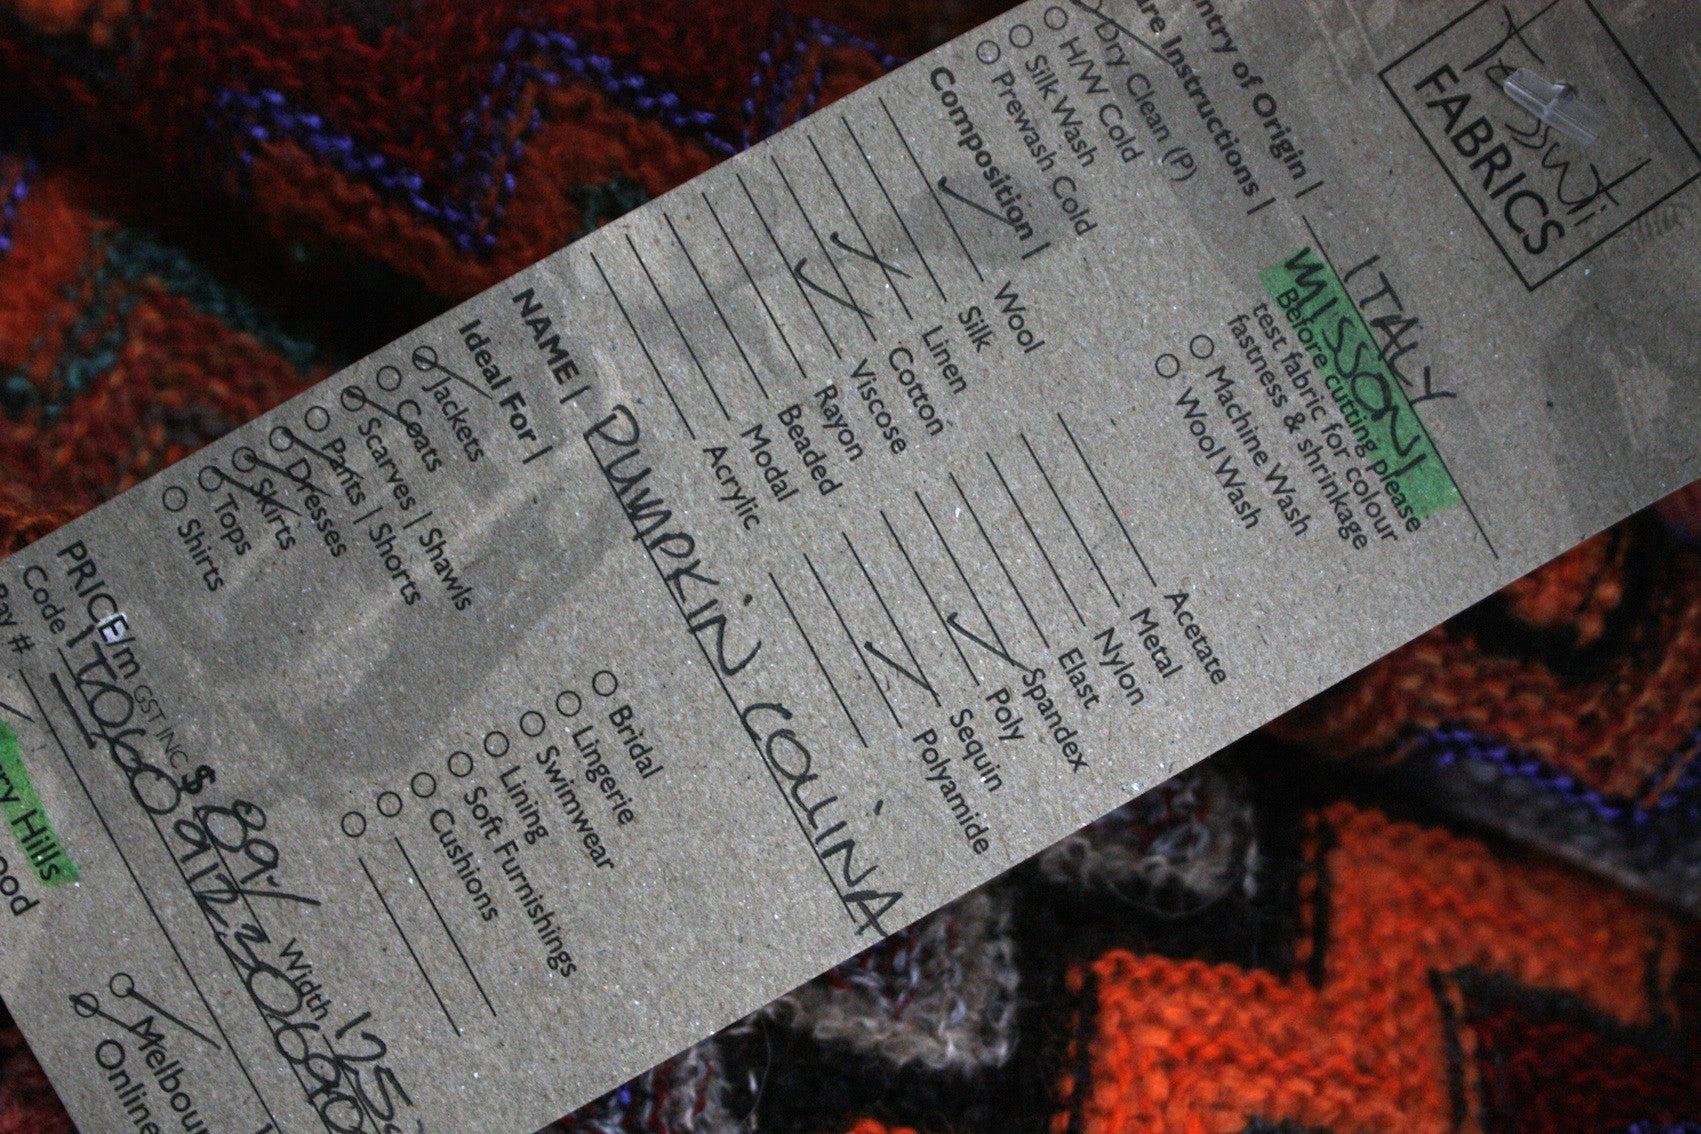 Tessuti
FABRICS
ntry of Origin | ITALY
re Instructions | MISSONI
Dry Clean (P)
H/W Cold
Silk Wash
Prewash Cold
Before cutting please
test fabric for colour
fastness & shrinkage
Machine Wash
Wool Wash
Composition |
Wool
Silk
Linen
Cotton
Viscose
Rayon
Beaded
Modal
Acrylic
Acetate
Metal
Nylon
Elast
Spandex
Poly
Sequin
Polyamide
NAME | PUMPKIN COLLINA
Ideal For |
Jackets
Coats
Scarves | Shawls
Pants | Shorts
Dresses
Skirts
Tops
Shirts
Bridal
Lingerie
Swimwear
Lining
Soft Furnishings
Cushions
PRICE/m GST INC $ 89-/ Width 125
Code
Bay #
rry Hills
ood
Melbour
Online